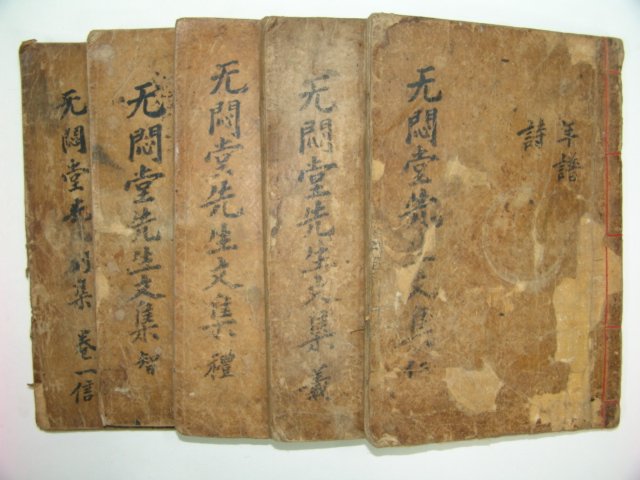 年譜
詩
无悶堂先生文集 仁
无悶堂先生文集 義
无悶堂先生文集 禮
无悶堂先生文集 智
无悶堂集 卷一信